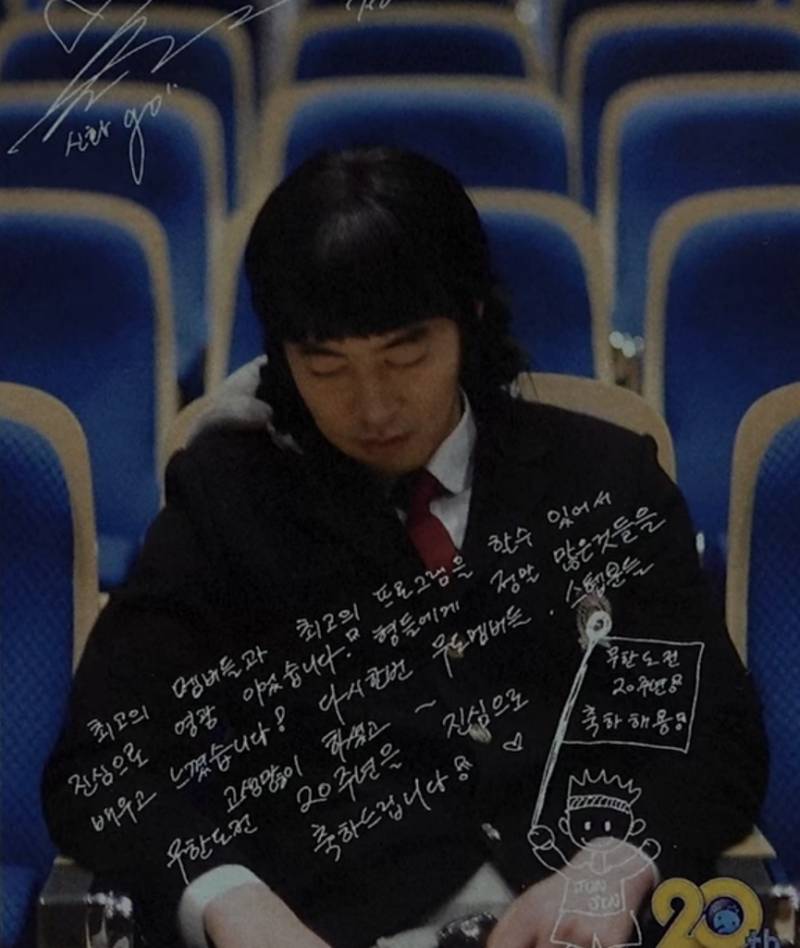 신화 go"
최고의 멤버들과 최고의 프로그램을 할수 있어서
진심으로 영광 이었습니다! 형들에게 정말 많은것들을
배우고 느꼈습니다! 다시한번 무도멤버들. 스텝분들
고생많이 하셨고 ~
무한도전 20주년을 진심으로
축하드립니다 ♡
무한도전
20주년
축하해용
JUN
JIN
20th